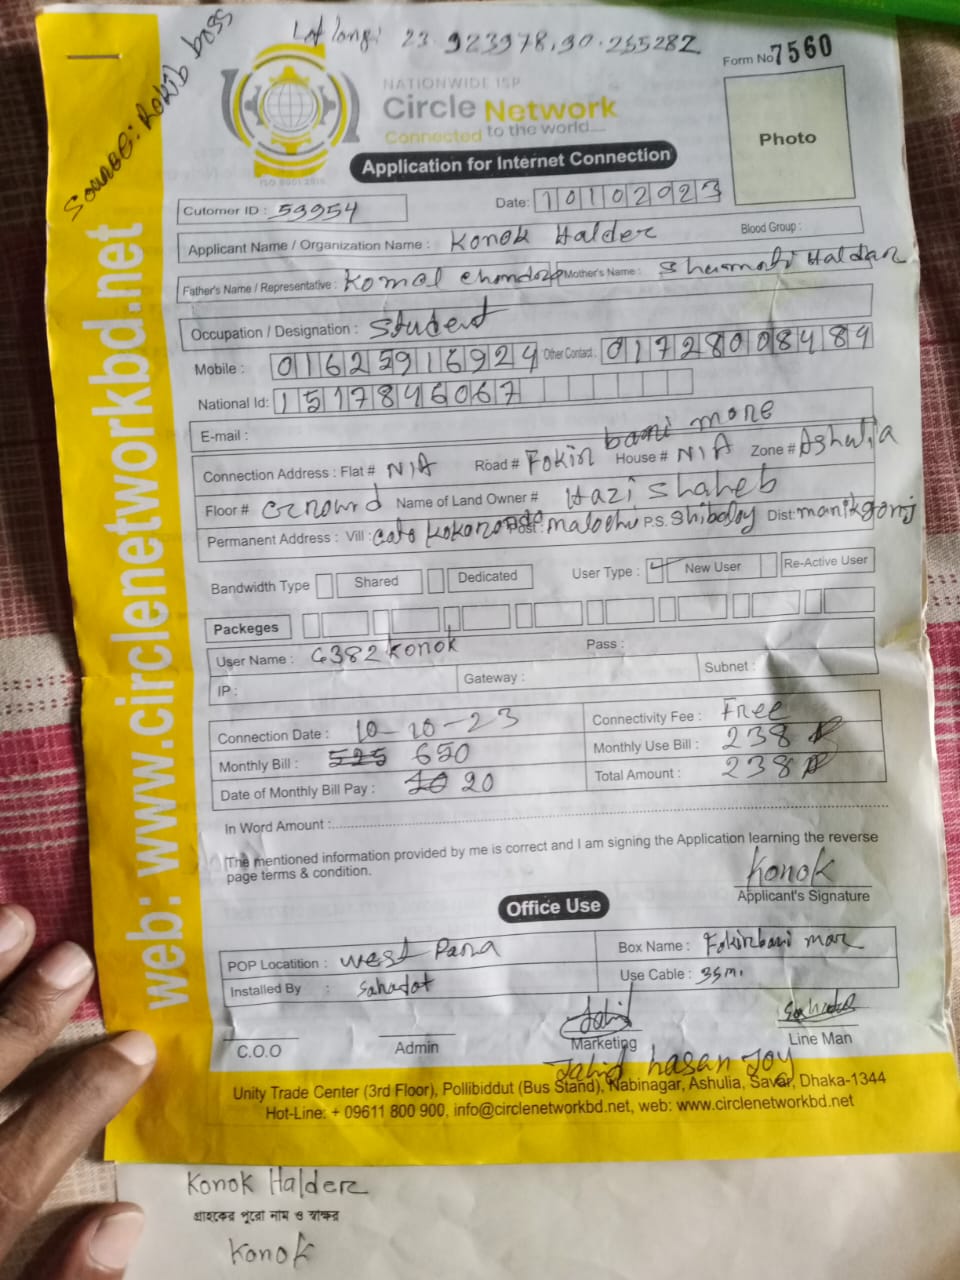 Lat long: 23.923978,90.255282
Source: Rakib boss
Form No 7560
NATIONWIDE ISP
Circle Network
Connected to the world....
ISO 9001:2015
Photo
Application for Internet Connection
Cutomer ID : 59954 Date: 10102023
Applicant Name / Organization Name : Konok Halder Blood Group :
Father's Name / Representative : Komol Mother's Name : Haldar
Occupation / Designation : Student
Mobile : 01625916924 Other Contact : 01728008489
National Id: 1517846067
E-mail :
Connection Address : Flat # N/A Road # Fokir bari more House # N/A Zone # Ashulia
Floor # Name of Land Owner # Hazi Shaheb
Permanent Address : Vill : Post : P.S. Shibaloy Dist: manikgonj
Bandwidth Type Shared Dedicated User Type : New User Re-Active User
Packeges
User Name : G382konok Pass :
IP : Gateway : Subnet :
Connection Date : 10-10-23 Connectivity Fee : Free
Monthly Bill : 525 650 Monthly Use Bill : 238
Date of Monthly Bill Pay : 10 20 Total Amount : 238
In Word Amount :
The mentioned information provided by me is correct and I am signing the Application learning the reverse
page terms & condition.
Konok
Applicant's Signature
Office Use
POP Locatition : west Para Box Name : Fokirbari mor
Installed By : Sahadat Use Cable : 35m.
Jahid
C.O.O Admin Marketing Line Man
Jahid hasan Joy
Unity Trade Center (3rd Floor), Pollibiddut (Bus Stand), Nabinagar, Ashulia, Savar, Dhaka-1344
Hot-Line: + 09611 800 900, info@circlenetworkbd.net, web: www.circlenetworkbd.net
web: www.circlenetworkbd.net
Konok Halder
গ্রাহকের পুরো নাম ও স্বাক্ষর
Konok